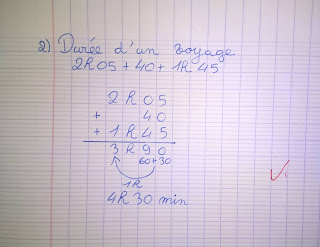 2) Durée d'un voyage
2h05 + 40 + 1h45
2 h 05
+ 40
+ 1 h 45
3 h 90
60+30
1h
4h 30 min